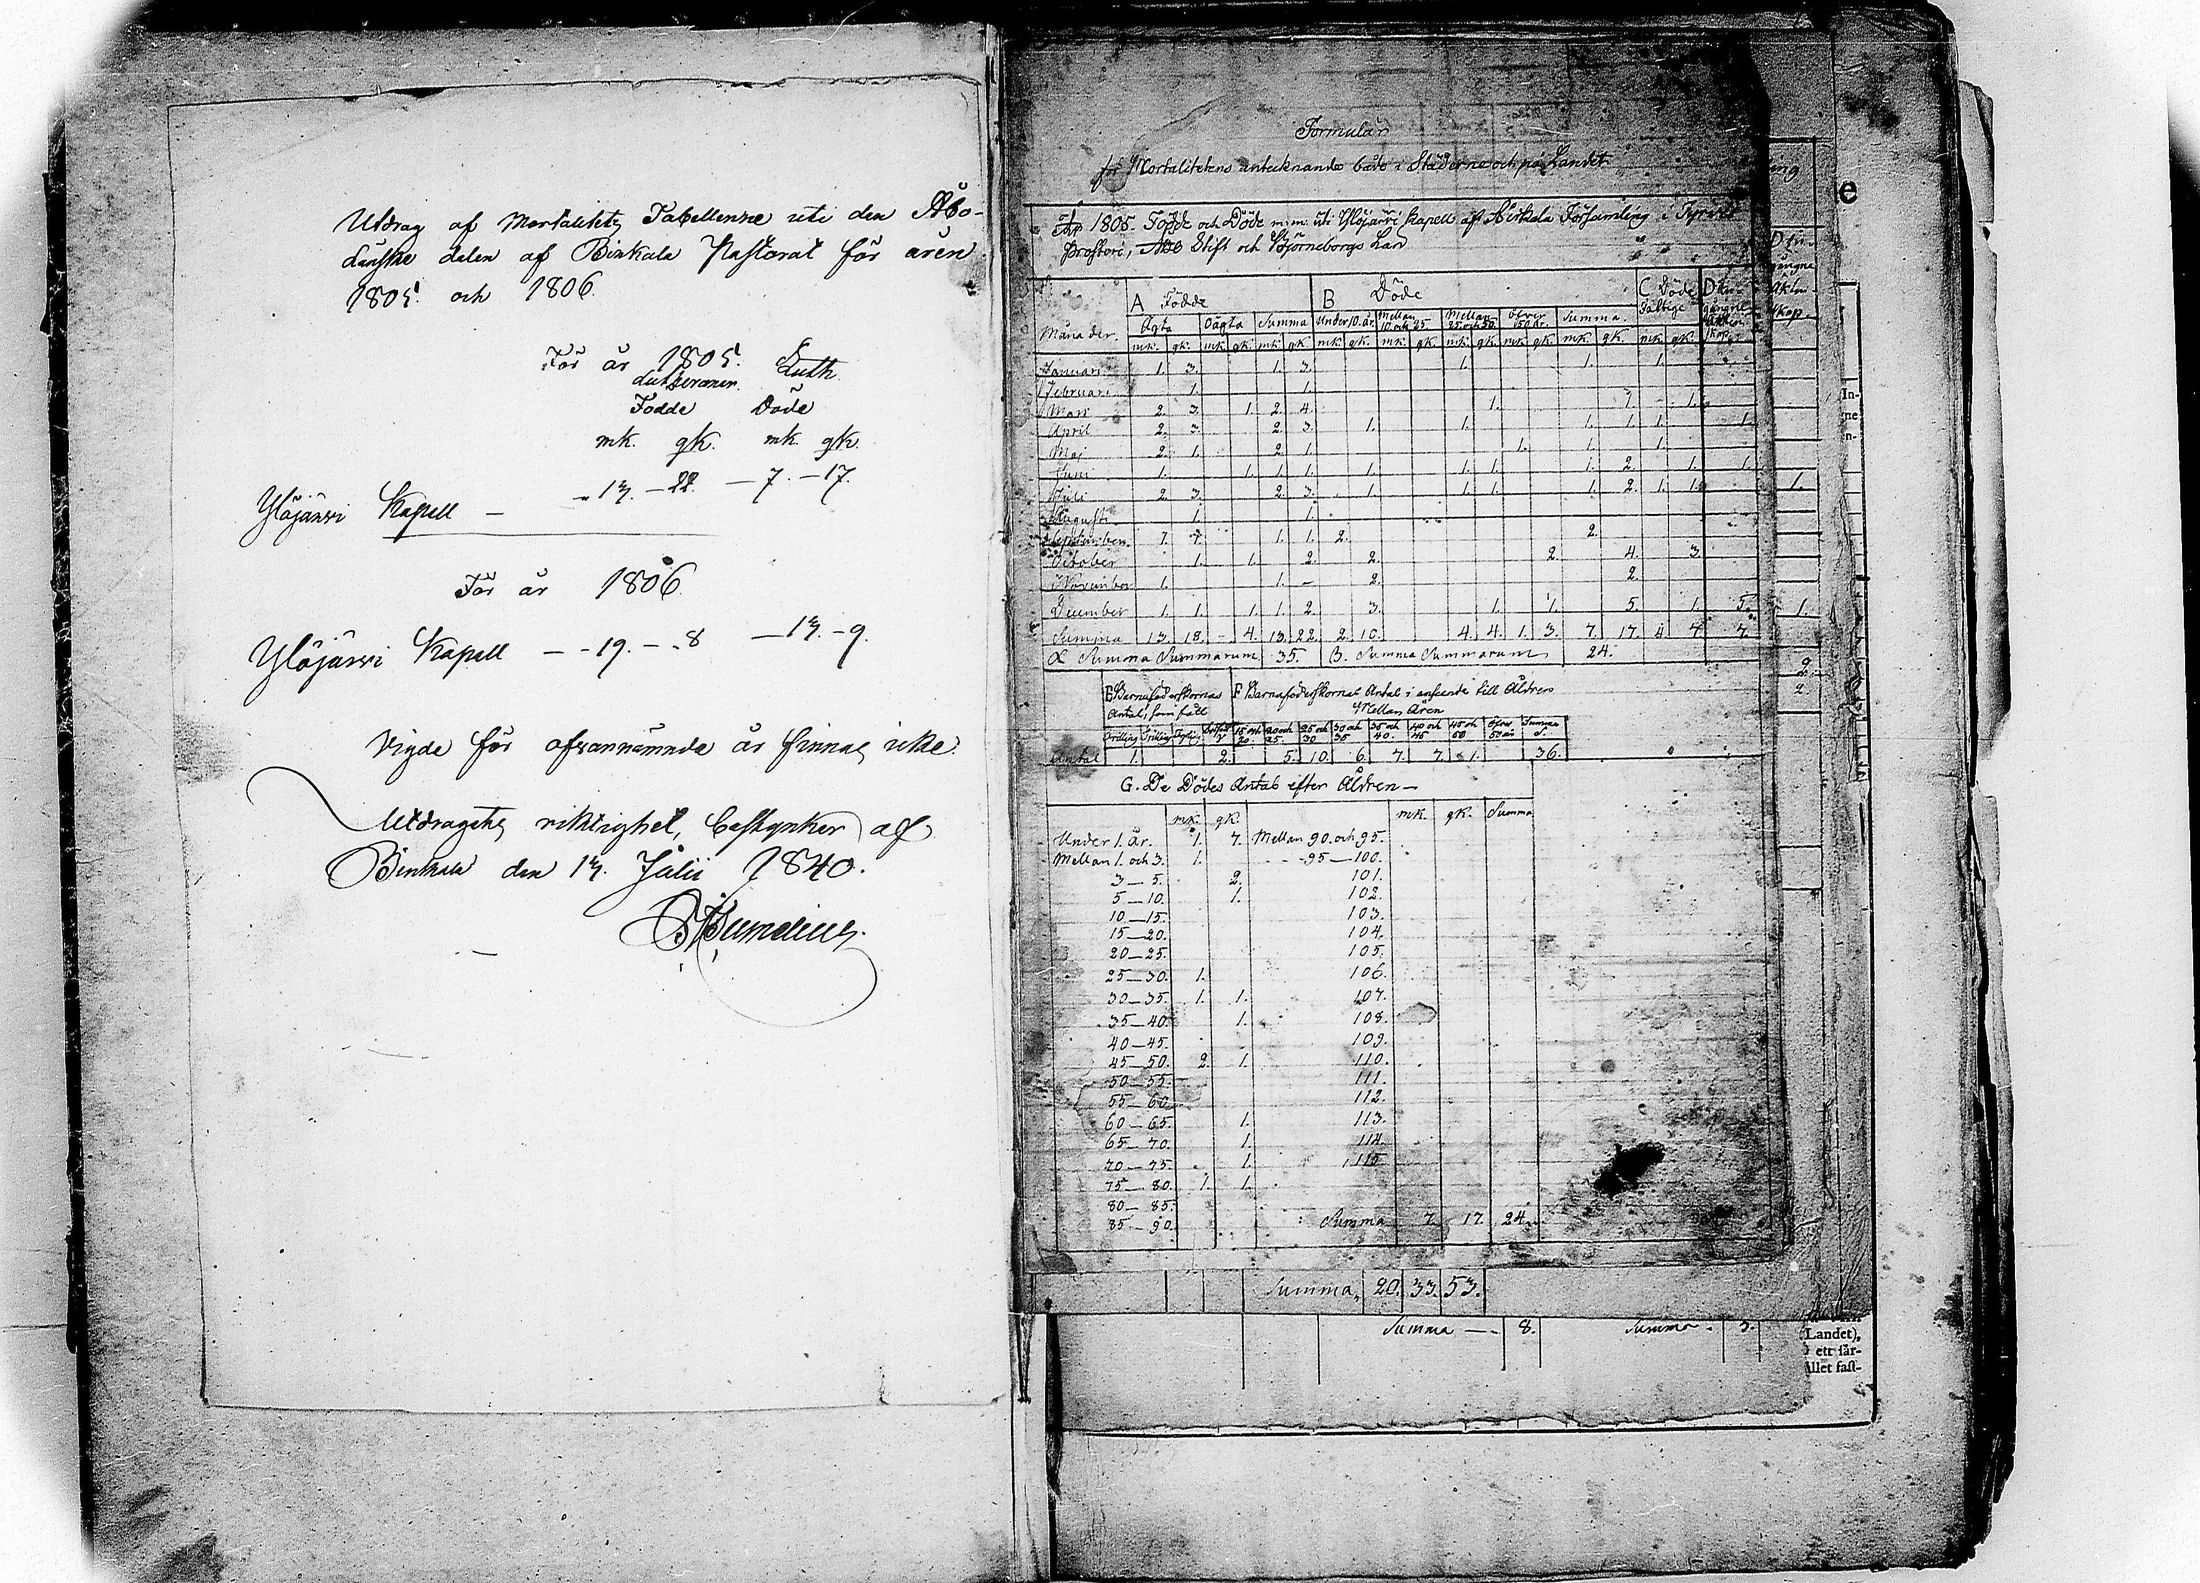 Utdrag af Mortalitets Tabellerne uti den Åbo-
länske delen af Birkala Pastorat för åren
1805. och 1806.
För år 1805.
Lutheraner. Luth.
Födde Döde
mk. qk. mk. qk.
Ylöjärvi Kapell — - 13. - 22. - 7. - 17.
För år 1806
Ylöjärvi Kapell - - 19. - - 8 - 13. - 9.
Vigde för ofvannämnde år finnas icke.
Utdragets riktighet, bestyrker af
Birkala den 13. Julii 1840.
Formulär
för Mortalitetens antecknande både i Städerne och på Landet
År 1805. Födde och Döde m.m. uti Ylöjärvi Kapell af Birkala Församling i Tyrvis
Prosteri, Åbo Stift och Björneborgs Län
A Födde B Döde C Döde
Månader. Ägta Oägta Summa Under 10. år. Mellan 10. och 25. Mellan 25. och 50. öfver 50. år. Summa.
mk. qk. mk. qk. mk. qk. mk. qk. mk. qk. mk. qk. mk. qk. mk. qk. mk. qk.
Januari 1. 3. 1. 3. 1. 1. 1.
Februari 1. 1.
Mars 2. 3. 1. 2. 4. 1. 1. 1.
April 2. 3. 2. 3. 1. 1. 1. 1. 1. 1.
Maj 2. 1. 2. 1. 1. 1. 1.
Juni 1. 1. 1. 1. 1. 1. 1. 1. 2. 1. 1.
Juli 2. 3. 2. 3. 1. 1. 1. 1. 2. 1. 1.
Augusti 1. 1.
September 1. 1. 1. 1. 2. 2.
October 1. 1. 2. 2. 2. 4. 3.
November 1. 1. - 2. 2.
December 1. 1. 1. 1. 2. 3. 1. 1. 5. 1. 5.
Summa 13. 18. - 4. 13. 22. 2. 10. 4. 4. 1. 3. 7. 17. 4 7 7.
Summa Summarum 35. B. Summa Summarum 24.
E Barnaföderskornas F Barnaföderskornas Antal i anseende till Åldren
Antal, som fått Mellan Åren
15 och 20. 20 och 25. 25 och 30 30 och 35 35 och 40. 40 och 45 45 och 50 öfver 50 år Summa
Antal 1. 2. 5. 10. 6. 7. 7. 1. 36.
G. De Dödes Antal efter Åldren —
mk. qk. mk. qk. Summa
Under 1. år. 1. 7. Mellan 90. och 95.
Mellan 1. och 3. 1. - - 95 — 100.
3 — 5. 2. 101.
5 — 10. 1. 102.
10 — 15. 103.
15 — 20. 104.
20 — 25. 105.
25 — 30. 1. 106.
30 — 35. 1. 1. 107.
35 — 40. 1. 108.
40 — 45. 109.
45 — 50. 2. 1. 110.
50 — 55. 111.
55 — 60 112.
60 — 65. 1. 113.
65 — 70. 1. 114.
70 — 75. 1. 115.
75 — 80. 1. 1.
80 — 85.
85 — 90. Summa 7. 17. 24.
Summa, 20. 33. 53.
Summa — - 8. Summa - 3.
Landet),
ett sär-
llet fast-